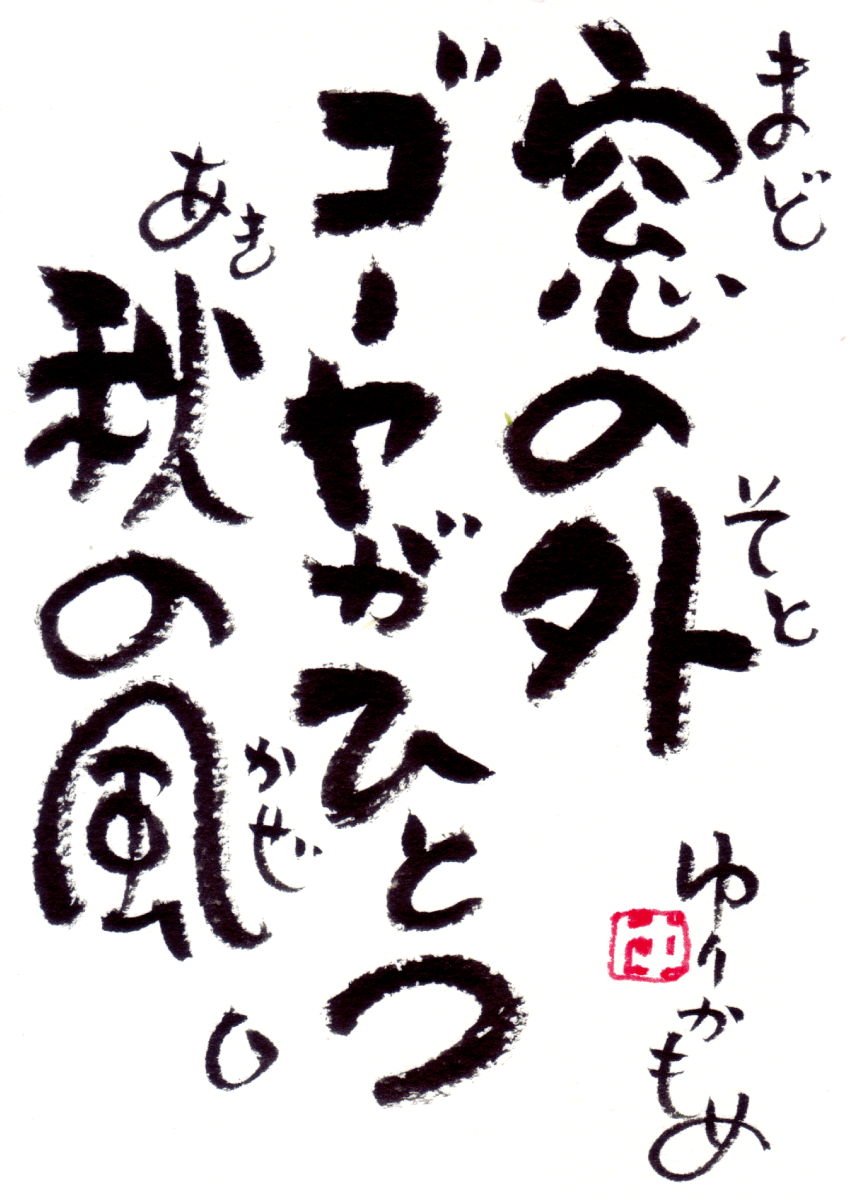 まど
そと
窓の外
ゴーヤがひとつ
あき
かぜ
秋の風。
ゆりかもめ
ゆ